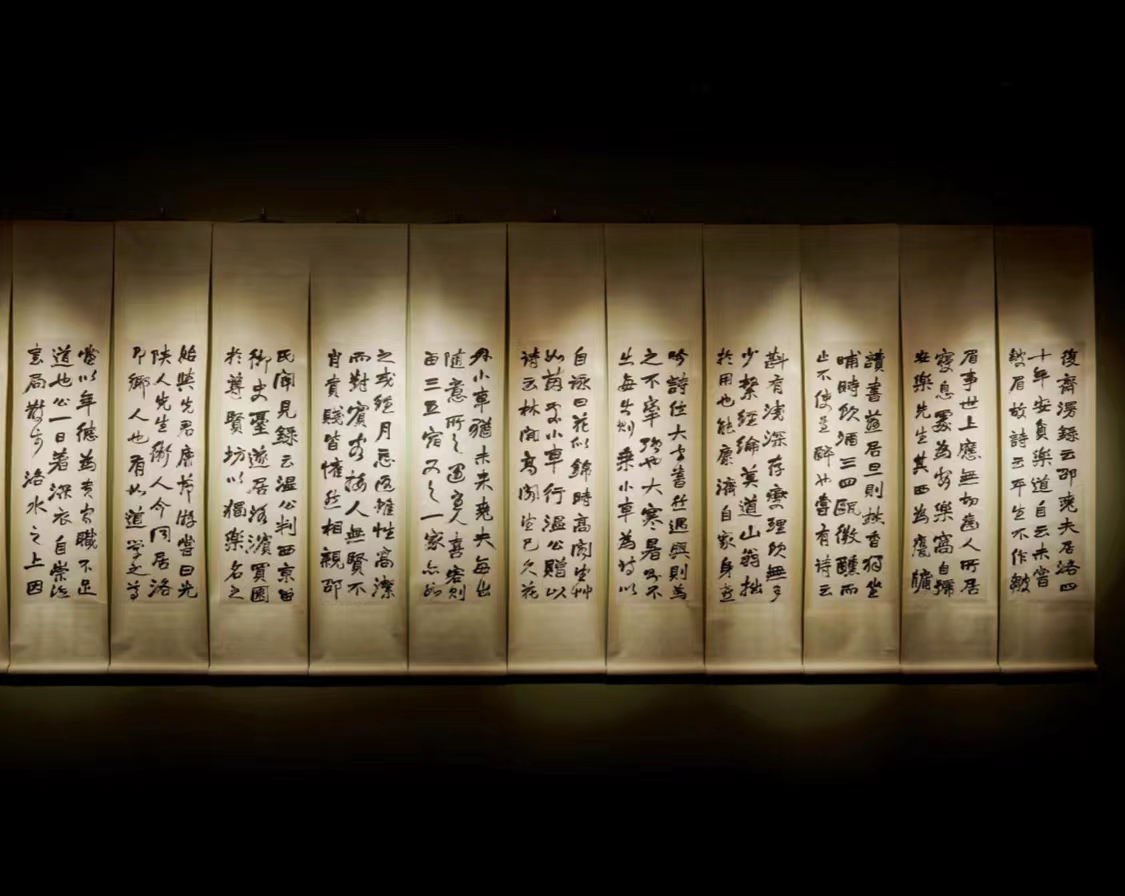 復齋漫錄云邵堯夫居洛四
十年安貧樂道自云未嘗
皺眉故詩云平生不作皺
眉事世上應無切齒人所居
寢息處為安樂窩自號
安樂先生其西為甕牖
讀書燕居旦則焚香獨坐
晡時飲酒三四甌微醺而
止不使至醉也嘗有詩云
斟有淺深存燮理飲無多
少繫經綸莫道山翁拙
於用也能康濟自家身
吟詩作大字書然遇興則為
之不牽強也大寒暑不
出每出則乘小車為詩以
自詠曰花似錦時高閣望艸
如茵處小車行溫公贈以
詩云林間高閣望已久花
外小車猶未來堯夫每出
隨意所之遇主人喜客則
留三五宿又之一家亦如
之或經月忘返雖性高潔
而對賓客接人無賢不
肖貴賤皆懽然相親邵
氏聞見錄云溫公判西京留
御史臺遂居洛濱買園
於尊賢坊以獨樂名之
始與先君康節游嘗曰光
陝人先生衛人今同居洛
即鄉人也有如道學之尊
當以年德為貴官職不足
道也公一日著深衣自崇德
寺書局散步洛水之上因